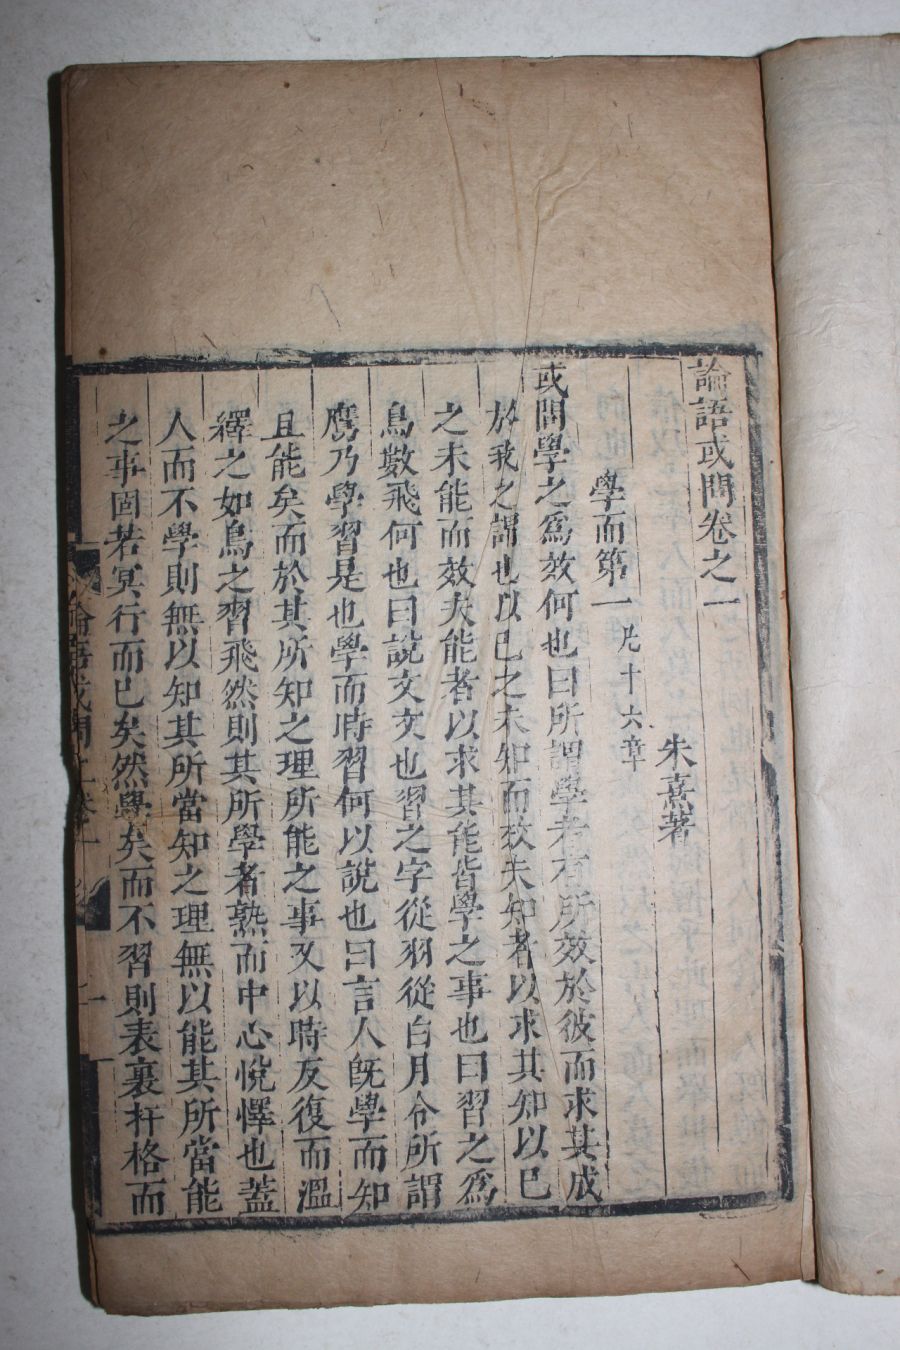 論語或問卷之一
朱熹著
學而第一 凡十六章
或問學之爲效何也曰所謂學者有所效於彼而求其成
於我之謂也以已之未知而效夫知者以求其知以已
之未能而效夫能者以求其能皆學之事也曰習之爲
鳥數飛何也曰說文文也習之字從羽從白月令所謂
鷹乃學習是也學而時習何以說也曰言人旣學而知
且能矣而於其所知之理所能之事又以時反復而溫
繹之如鳥之習飛然則其所學者熟而中心悅懌也蓋
人而不學則無以知其所當知之理無以能其所當能
之事固若冥行而已矣然學矣而不習則表裏扞格而
論語或問 卷一 一